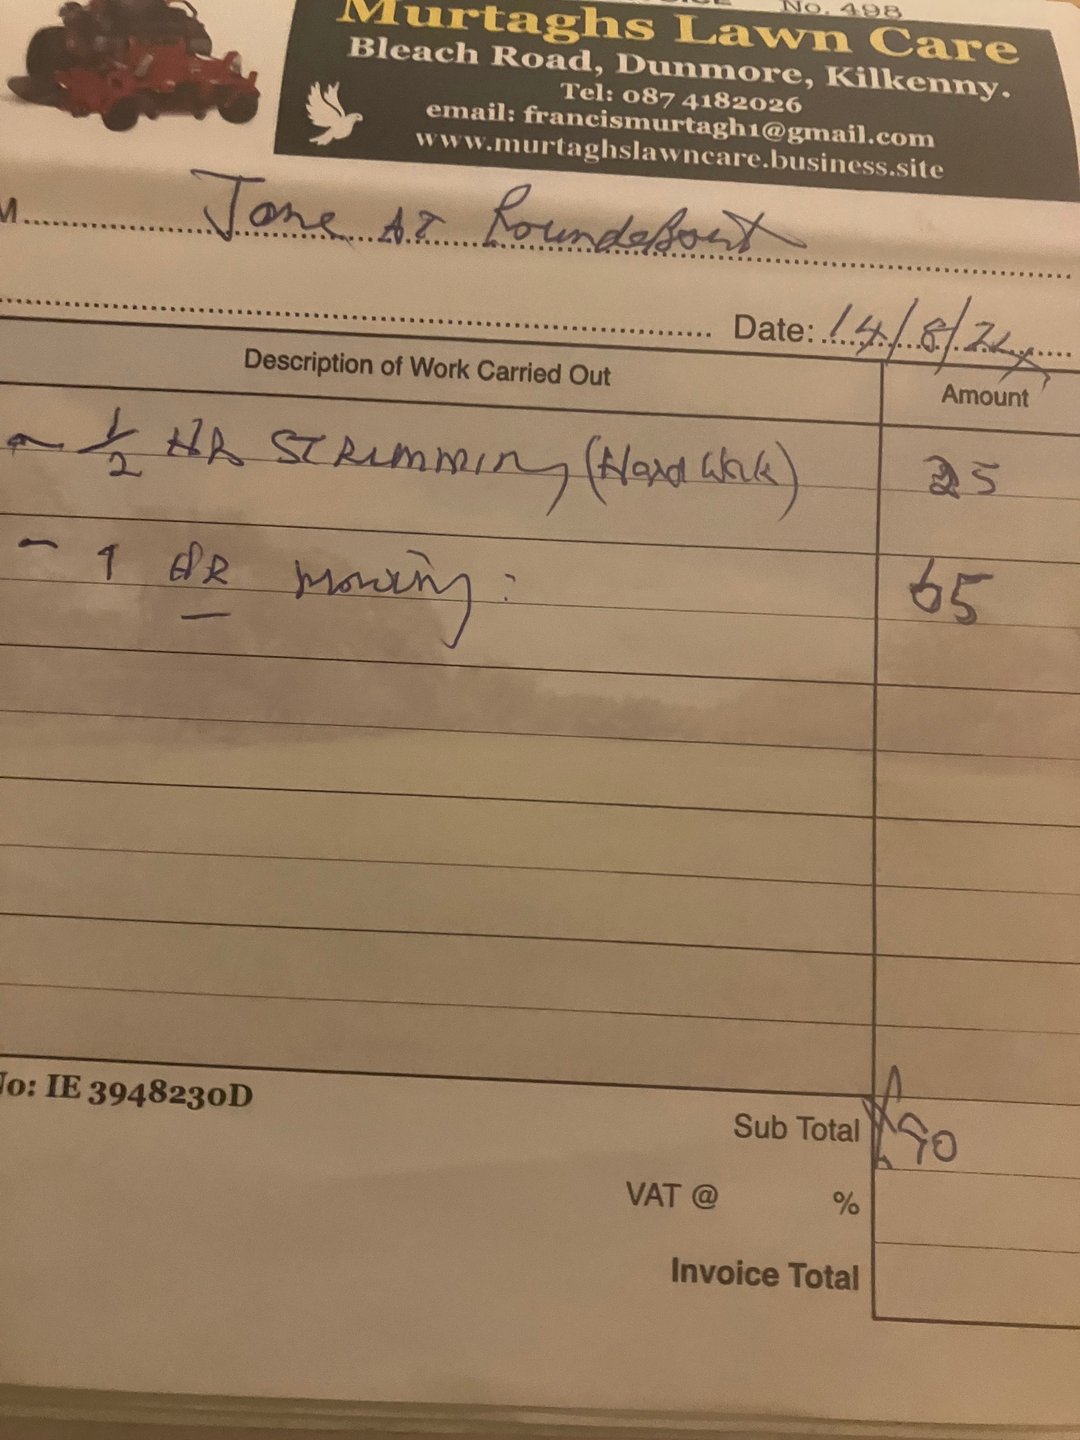 No. 498
Murtaghs Lawn Care
Bleach Road, Dunmore, Kilkenny.
Tel: 087 4182026
email: francismurtagh1@gmail.com
www.murtaghslawncare.business.site
M Jane AT Roundabout
Date: 14/8/24
Description of Work Carried Out Amount
- 1/2 HR STRIMMING (Hard Work) 25
- 1 HR mowing: 65
No: IE 3948230D
Sub Total €90
VAT @ %
Invoice Total